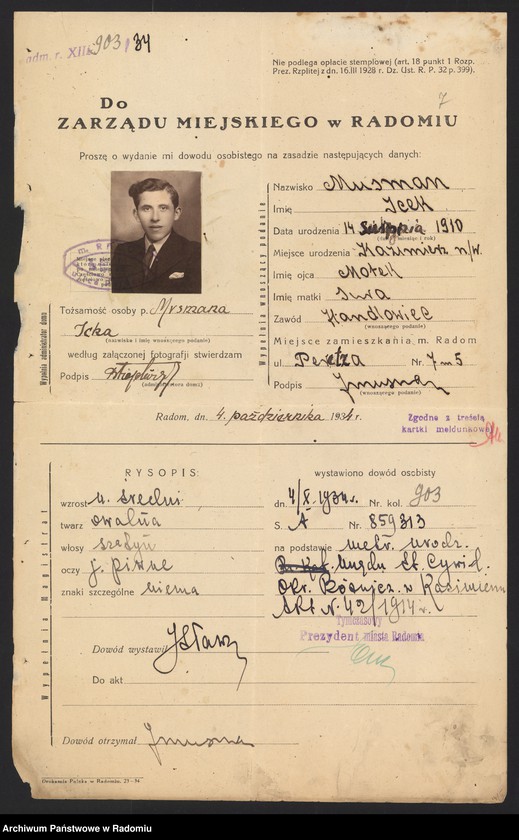 adm. r. XII 903/34
Nie podlega opłacie stemplowej (art. 18 punkt 1 Rozp.
Prez. Rzplitej z dn. 16.III 1928 r. Dz. Ust. R. P. 32 p. 399).
7
Do
ZARZĄDU MIEJSKIEGO w RADOMIU
Proszę o wydanie mi dowodu osobistego na zasadzie następujących danych:
Wypełnia wnoszący podanie
Nazwisko Musman
Imię Icek
Data urodzenia 14 sierpnia 1910
(dzień, miesiąc i rok)
Miejsce urodzenia Kazimierz n/w.
Imię ojca Motek
Imię matki
Zawód Handlowiec
(wnoszącego podanie)
Miejsce zamieszkania m. Radom
ul. Peretza Nr. 7 m 5
Podpis JMusman
(wnoszącego podanie)
Wypełnia administrator domu
Tożsamość osoby p. Mysmana
Icka
(nazwisko i imię wnoszącego podanie)
według załączonej fotografji stwierdzam
Podpis
(administratora domu)
Radom, dn. 4. października 1934 r.
Zgodne z treścią
kartki meldunkowej
Wypełnia Magistrat
RYSOPIS:
wzrost n. średni
twarz owalna
włosy szatyn
oczy j. piwne
znaki szczególne niema
wystawiono dowód osobisty
dn 4/X.1934r. Nr. kol. 903
S. A Nr. 859313
na podstawie metr. urodz.
Urzędu St. Cywil.
Okr. Bóżnicz. w Kazimierzu
Akt N. 42/1914 r.
Tymczasowy
Prezydent miasta Radomia
Dowód wystawił
Do akt
Dowód otrzymał JMusman
Drukarnia Polska w Radomiu. 25-34
Archiwum Państwowe w Radomiu